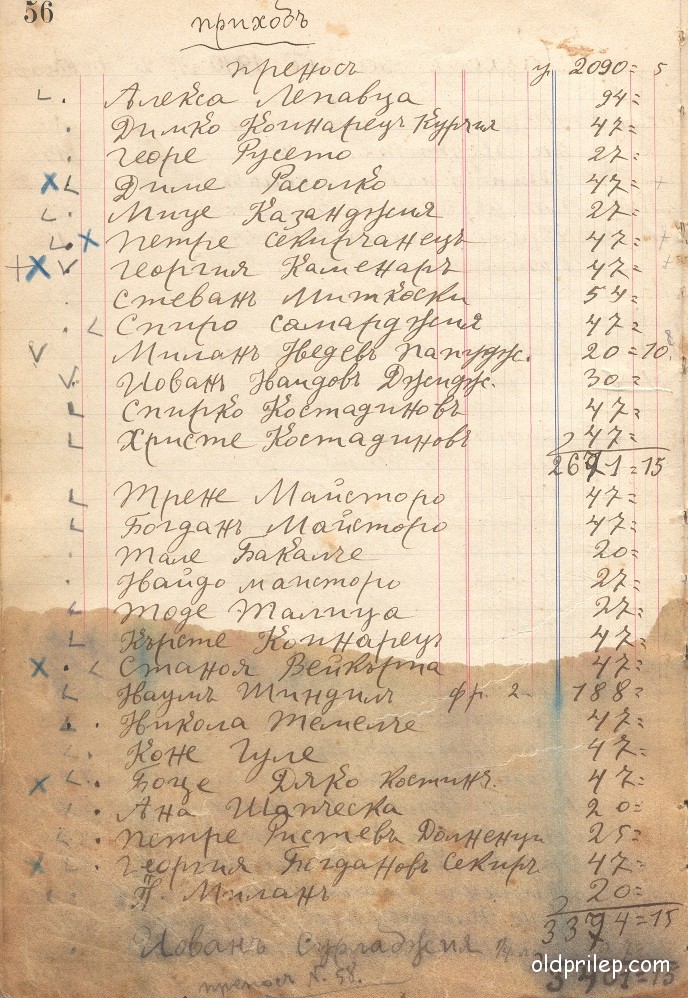 56
приходъ
преносъ у 2090= 5
Алекса Лепавца 94=
Димко Коинарецъ Курчия 47=
Георе Русето 27=
Диме Расолко 47=
Мице Казанджия 27=
Петре Секирчанецъ 47=
Георгия Каменаръ 47=
Стеванъ Миткоски 54=
Спиро Самарджия 47=
Миланъ Неделевъ Папудж. 20=10
Иованъ Наидовъ Джидж. 30=
Спирко Костадиновъ 47=
Христе Костадиновъ 47=
2671=15
Трене Маисторо 47=
Богданъ Маисторо 47=
Тале Бакалче 20=
Наидо маисторо 27=
Тоде Талица 27=
Кърсте Коинарецъ 47=
Станоя Вейкърпа 47=
Наумъ Шиндилъ фр. 2 188=
Никола Темелче 47=
Коне Гуле 47=
Боце Дяко Костинъ. 47=
Ана Шапческа 20=
Петре Ристевъ Долненци 25=
Георгия Богдановъ Секирч 47=
П. Миланъ 20=
3394=15
Иованъ Сурладжия
преносъ N. 58.
oldprilep.com